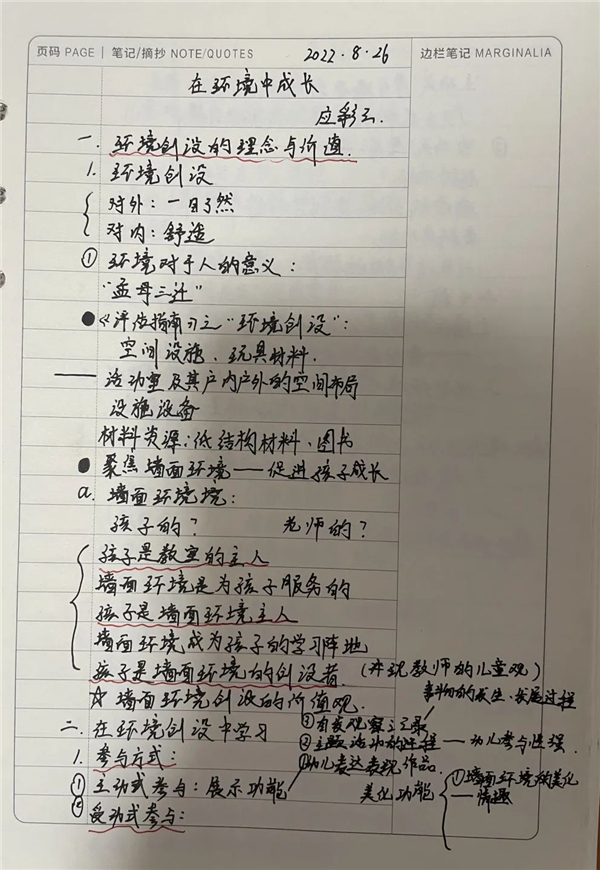 页码 PAGE | 笔记/摘抄 NOTE/QUOTES 2022.8.26 边栏笔记 MARGINALIA
在环境中成长
应彩云.
一. 环境创设的理念与价值.
1. 环境创设
对外: 一目了然
对内: 舒适
① 环境对于人的意义:
"孟母三迁"
●《评估指南》之"环境创设":
空间设施、玩具材料.
——活动室及其户内户外的空间布局
设施设备
材料资源: 低结构材料、图书
● 聚焦墙面环境——促进孩子成长
a. 墙面环境境:
孩子的? 老师的?
孩子是教室的主人
墙面环境是为孩子服务的
孩子是墙面环境主人
墙面环境成为孩子的学习阵地
孩子是墙面环境的的创设者. (并现教师的儿童观)
☆ 墙面环境创设的价值观. 事物的发生、发展过程
二. 在环境创设中学习 ①有我观察之记录
1. 参与方式: ②主题活动的进程——幼儿参与性强.
① 主动式参与: 展示功能 ③幼儿表达表现作品.
② 受动式参与: 美化功能 ①墙面环境的美化
—情趣